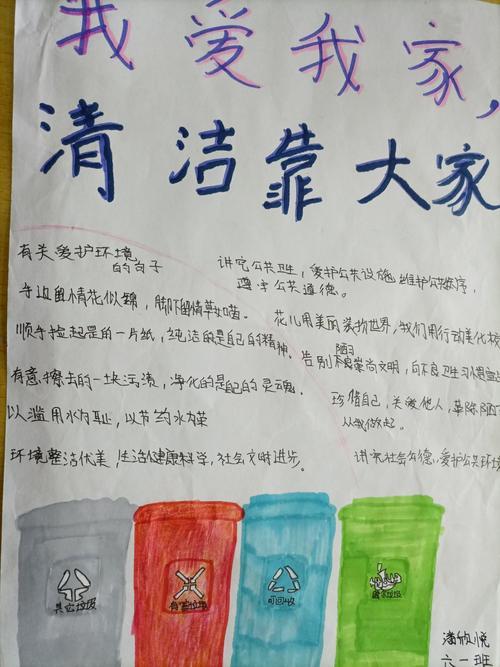 我爱我家，
清洁靠大家
有关爱护环境
的句子
手边留情花似锦，脚下留情草如茵。
顺手捡起是的一片纸，纯洁的是自己的精神。
有意擦去的一块污渍，净化的是自己的灵魂。
以滥用水为耻，以节约水为荣
环境整洁优美，生活健康科学，社会文明进步。
讲究公共卫生，爱护公共设施，维护公共秩序，
遵守公共道德。
花儿用美丽装扮世界，我们用行动美化校
告别陋习崇尚文明，向不良卫生习惯宣
珍惜自己，关爱他人，革除陋
从我做起。
讲究社会公德，爱护公共环境
其它垃圾
有害垃圾
可回收
厨余垃圾
潘欣悦
六一班